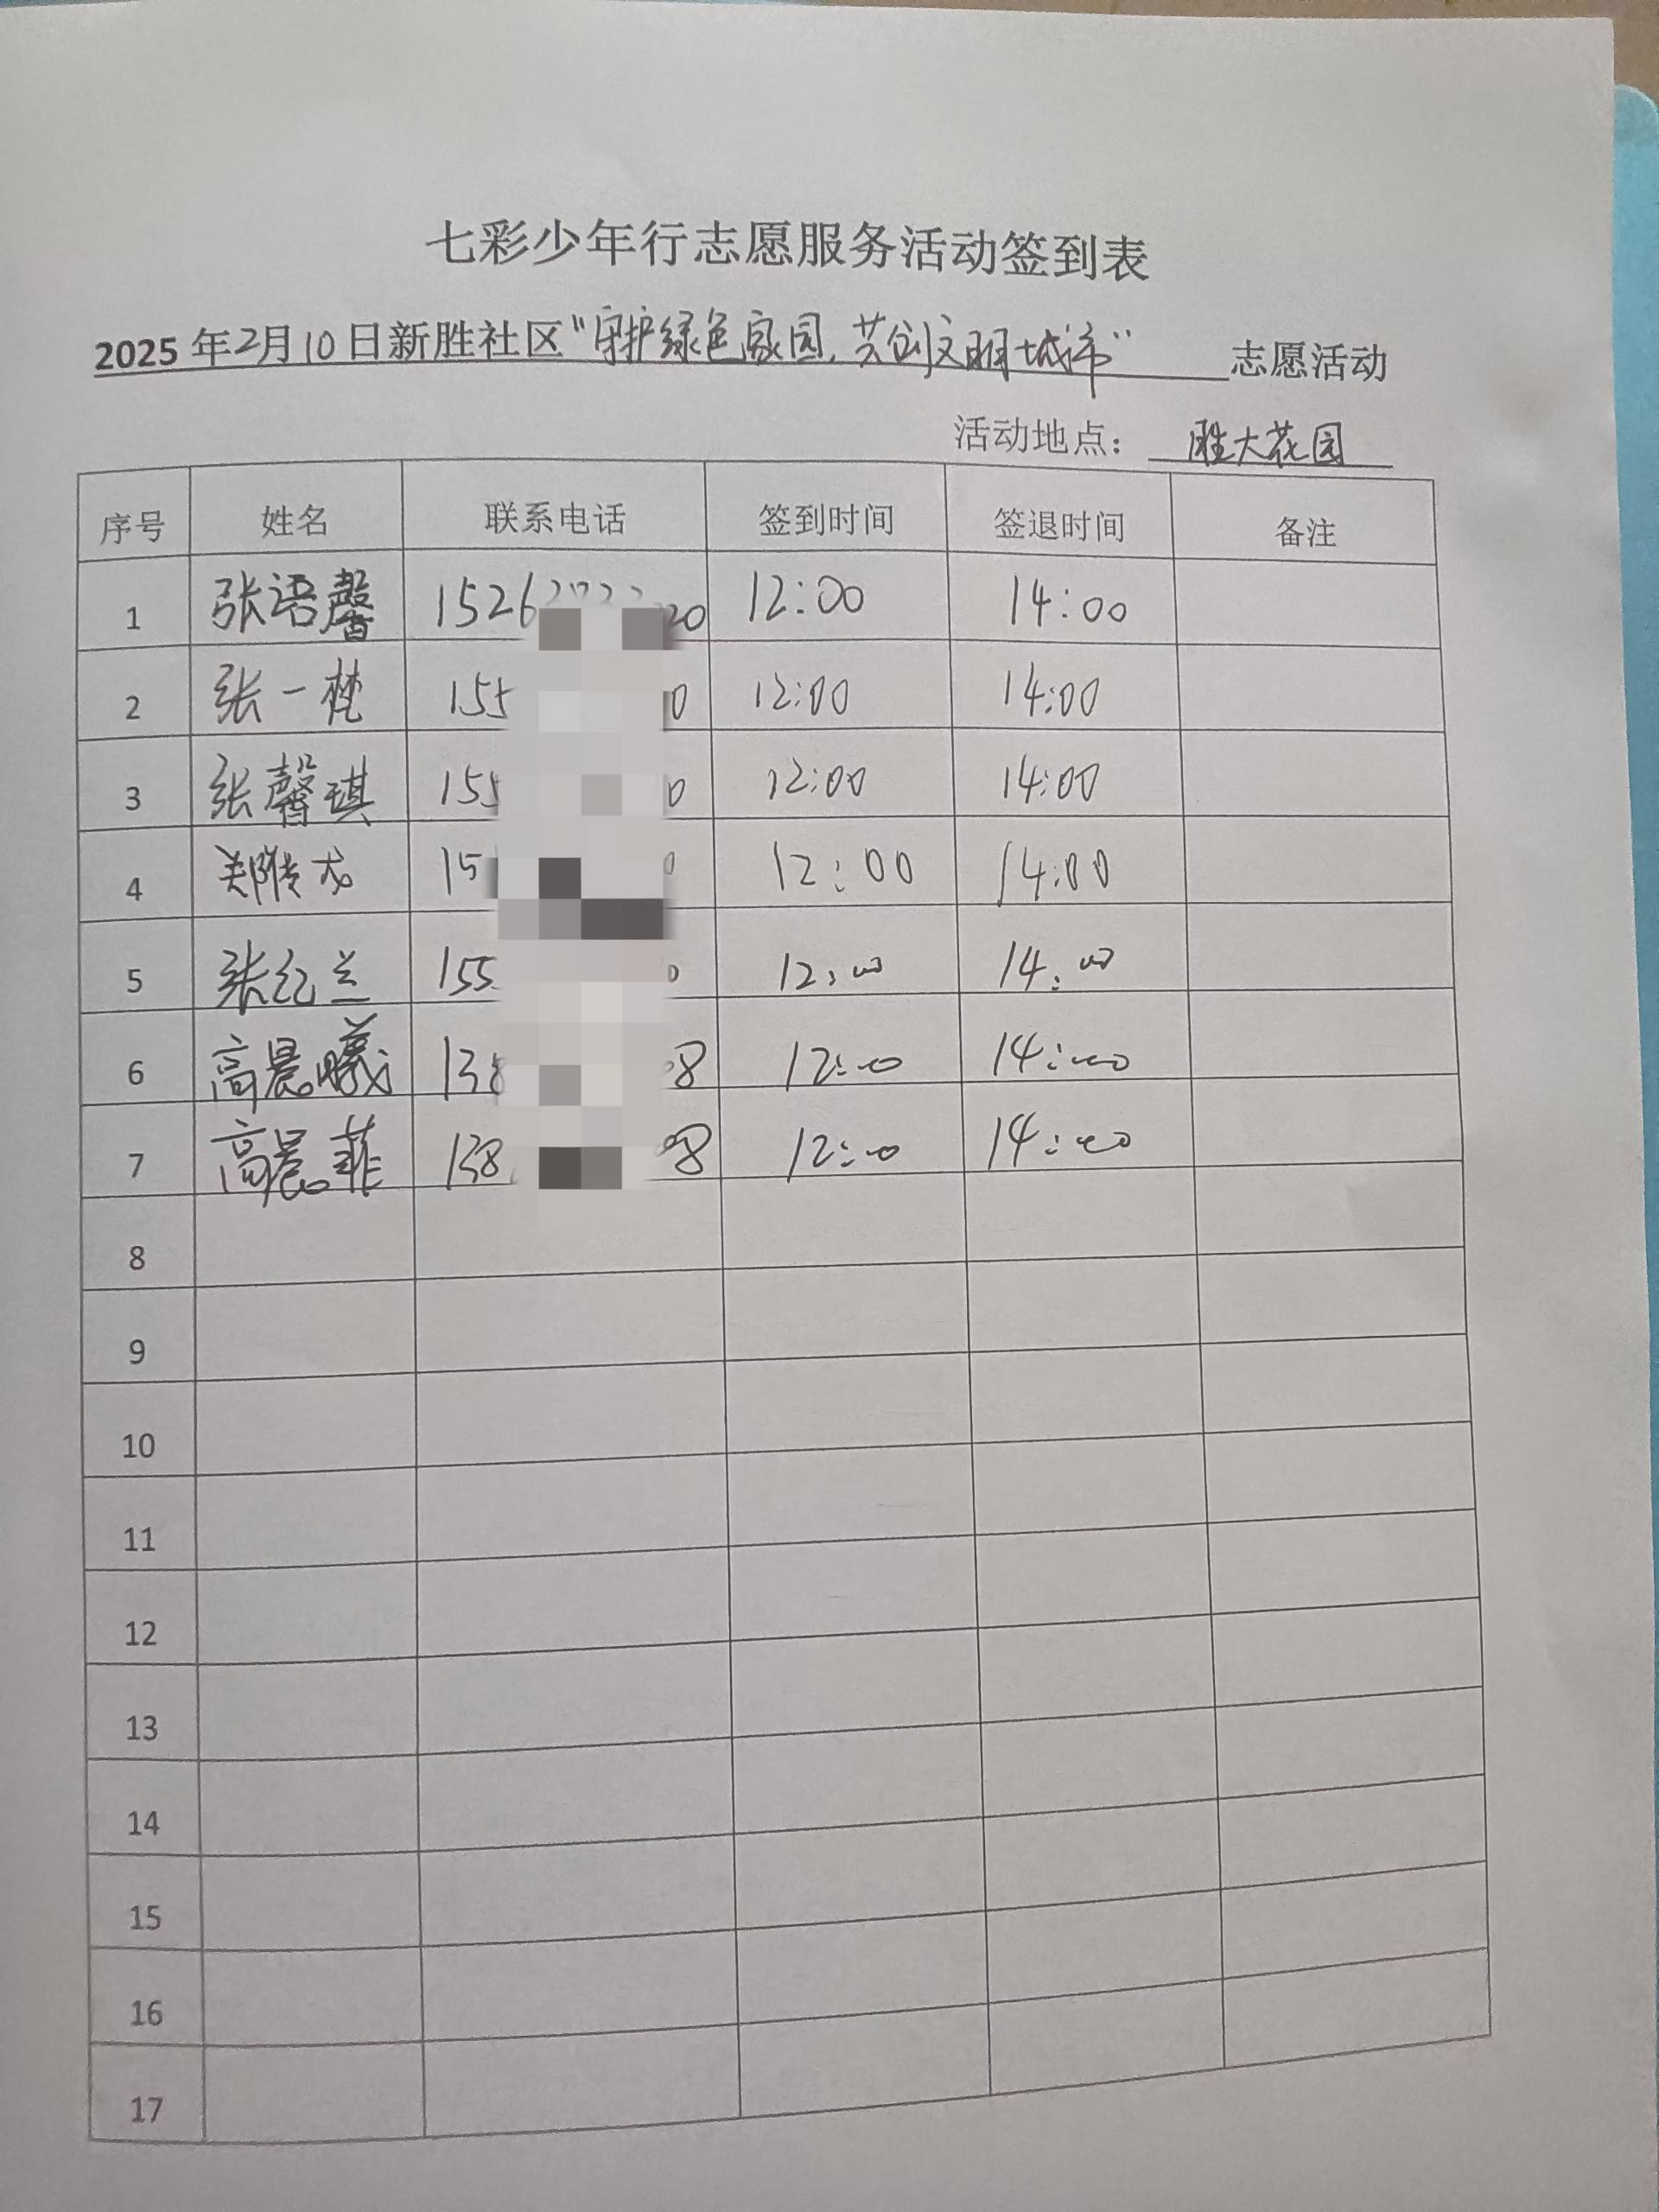 七彩少年行志愿服务活动签到表
2025年2月10日新胜社区"守护绿色家园,共创文明城市" 志愿活动
活动地点: 胜大花园
序号 姓名 联系电话 签到时间 签退时间 备注
1 张语馨 1526 20 12:00 14:00
2 张一梵 155 0 12:00 14:00
3 张馨琪 155 0 12:00 14:00
4 15 0 12:00 14:00
5 张红兰 155 0 12:00 14:00
6 高晨曦 138 8 12:00 14:00
7 高晨菲 138 98 12:00 14:00
8
9
10
11
12
13
14
15
16
17